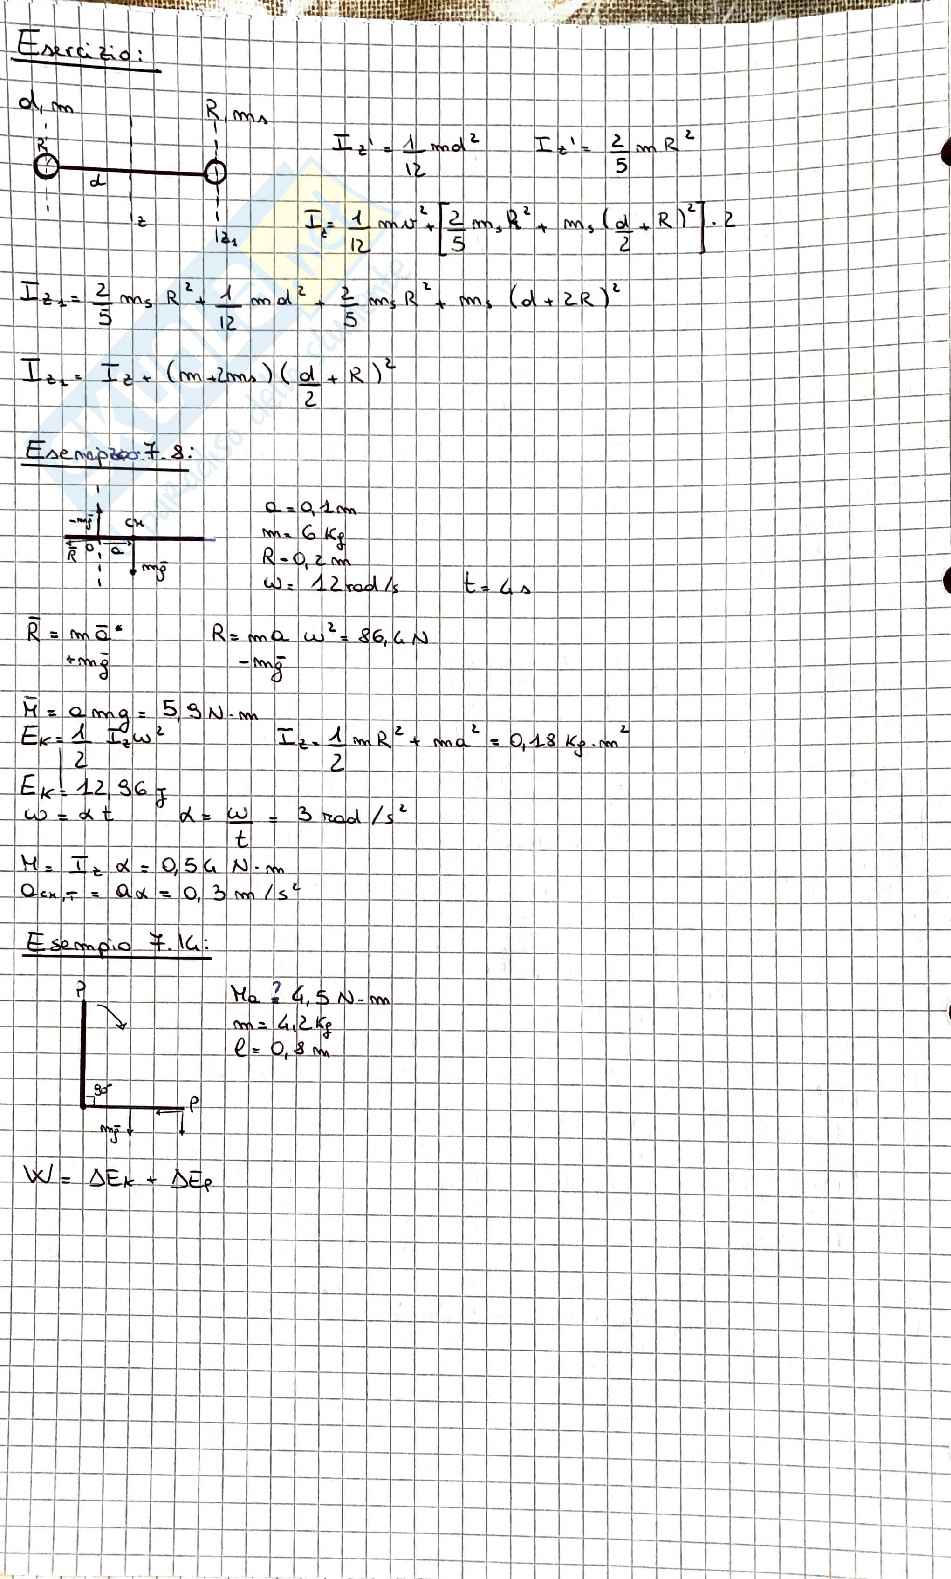 Esercizio:
d, m
R, ms
R
d
z
z₁
I_z' = 1/12 md²   I_z' = 2/5 m R²
I_z = 1/12 mv² + [2/5 m_s R² + m_s (d/2 + R)²] · 2
I_z₁ = 2/5 m_s R² + 1/12 m d² + 2/5 m_s R² + m_s (d + 2R)²
I_z₁ = I_z + (m + 2m_s) (d/2 + R)²
Esempio 7.8:
-mḡ CM
R̄ O a
mḡ
a = 0,1 m
m = 6 Kg
R = 0,2 m
ω = 12 rad/s   t = 4 s
R̄ = m ā   R = m a ω² = 86,4 N
+mḡ   -mḡ
M̄ = a m g = 5,9 N·m
E_K = 1/2 I_z ω²   I_z = 1/2 m R² + m a² = 0,18 Kg·m²
E_K = 12,96 J
ω = α t   α = ω/t = 3 rad/s²
M = I_z α = 0,54 N·m
a_CM,T = a α = 0,3 m/s²
Esempio 7.14:
P
90°
P
mḡ
Ma ?= 4,5 N·m
m = 4,2 Kg
l = 0,8 m
W = ΔE_K + ΔE_P